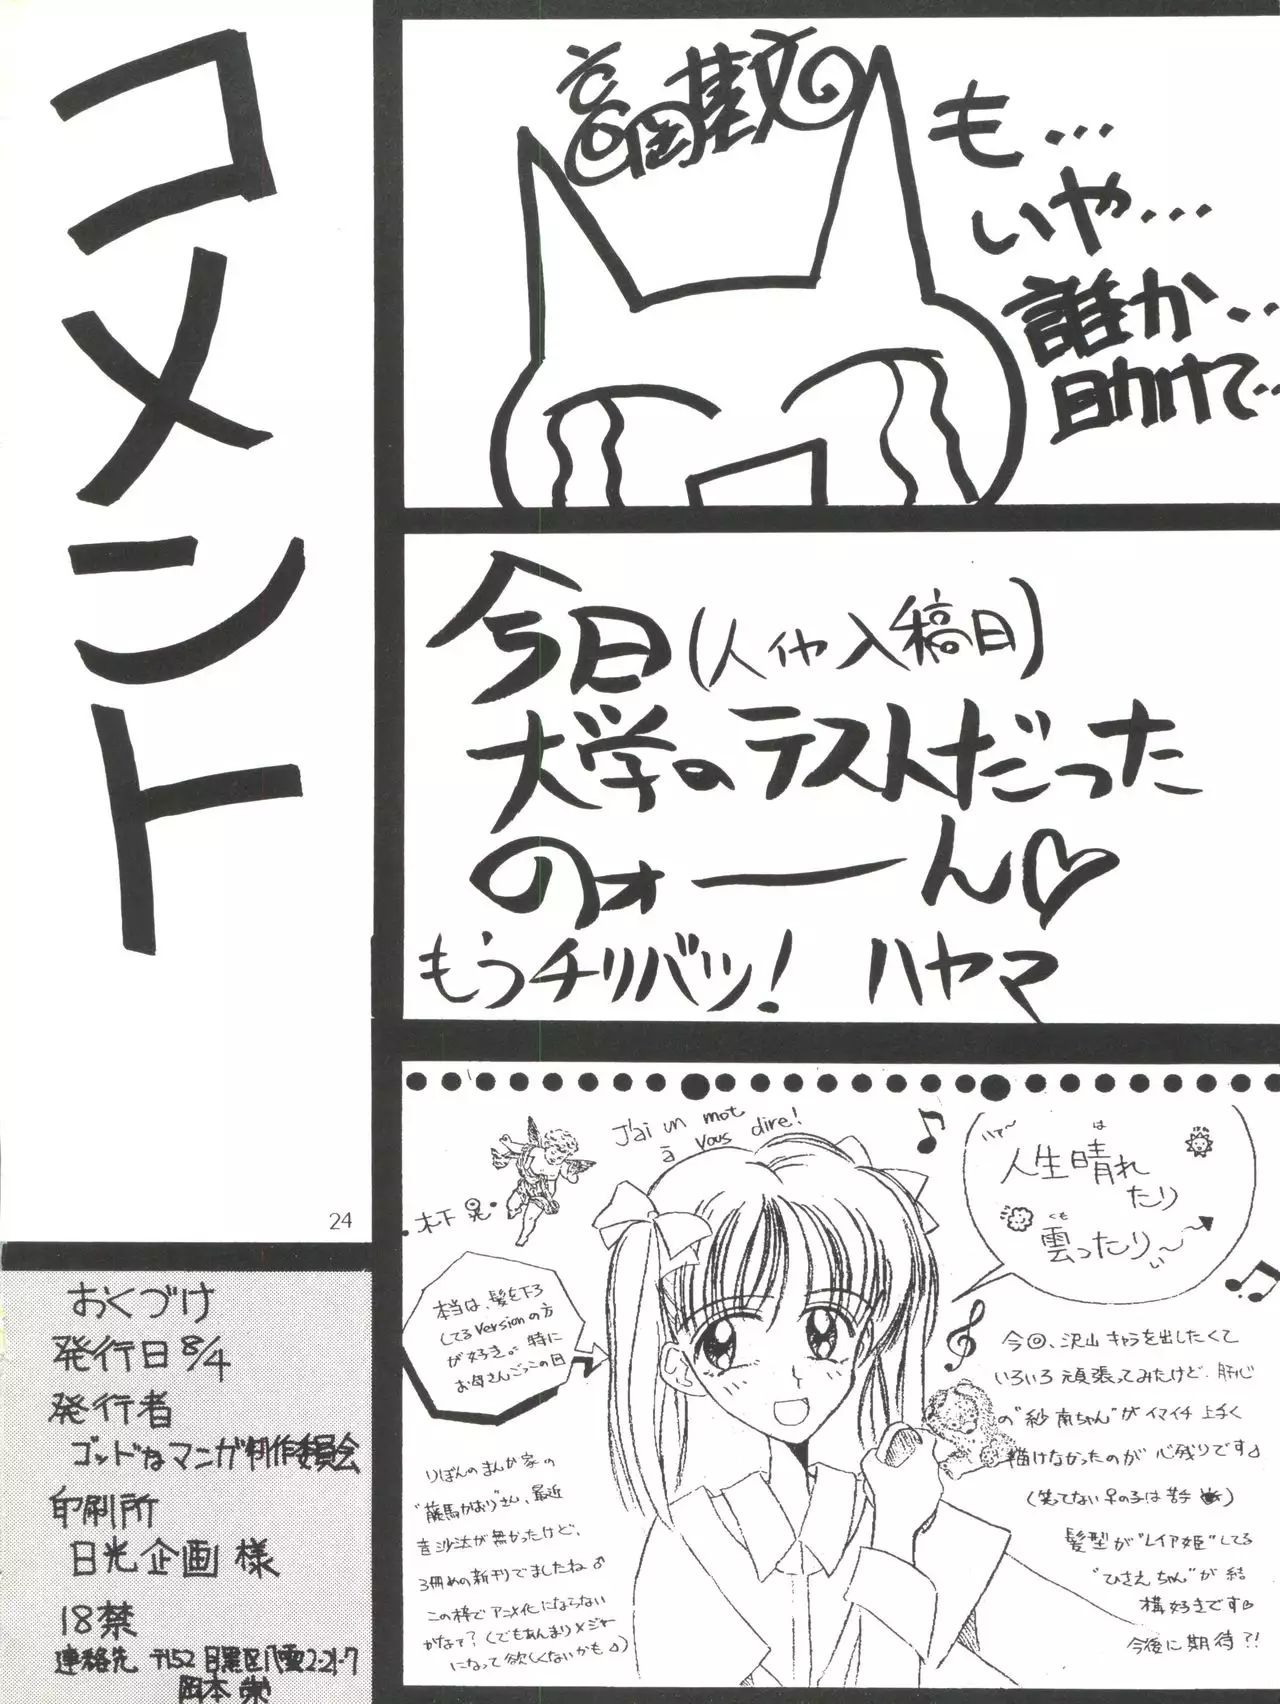 コメント
高岡基文
も…
いや…
誰か…
助けて…
今日(人イヤ入稿日)
大学のテストだった
のォーーん♡
もうチリバツ! ハヤマ
J'ai un mot
à vous dire!
木下 晃
ハア〜
人生晴れ
は
たり
雲ったり〜
くも
本当は、髪を下ろ
してるVersionの方
が好き。特に
お母さんごっこの回
今回、沢山 キャラを出したくて
いろいろ 頑張ってみたけど、肝心
の"紗南ちゃん"が イマイチ 上手く
描けなかったのが 心残りです♪
(笑てない 子は苦手)
髪型が"レイア姫"してる
"ひさえちゃん"が 結
構好きです♡
今後に期待?!
りぼんのまんが家の
"藤馬かおり"さん、最近
音沙汰が無かったけど、
3冊めの新刊でましたね♪
この枠で アニメ化にならない
かなて?(でもあんまりメジャー
になって欲しくないかも♪)
24
おくづけ
発行日 8/4
発行者
ゴッドなマンガ制作委員会
印刷所
日光企画 様
18禁
連絡先 〒152 目黒区八雲2-21-7
岡本 崇